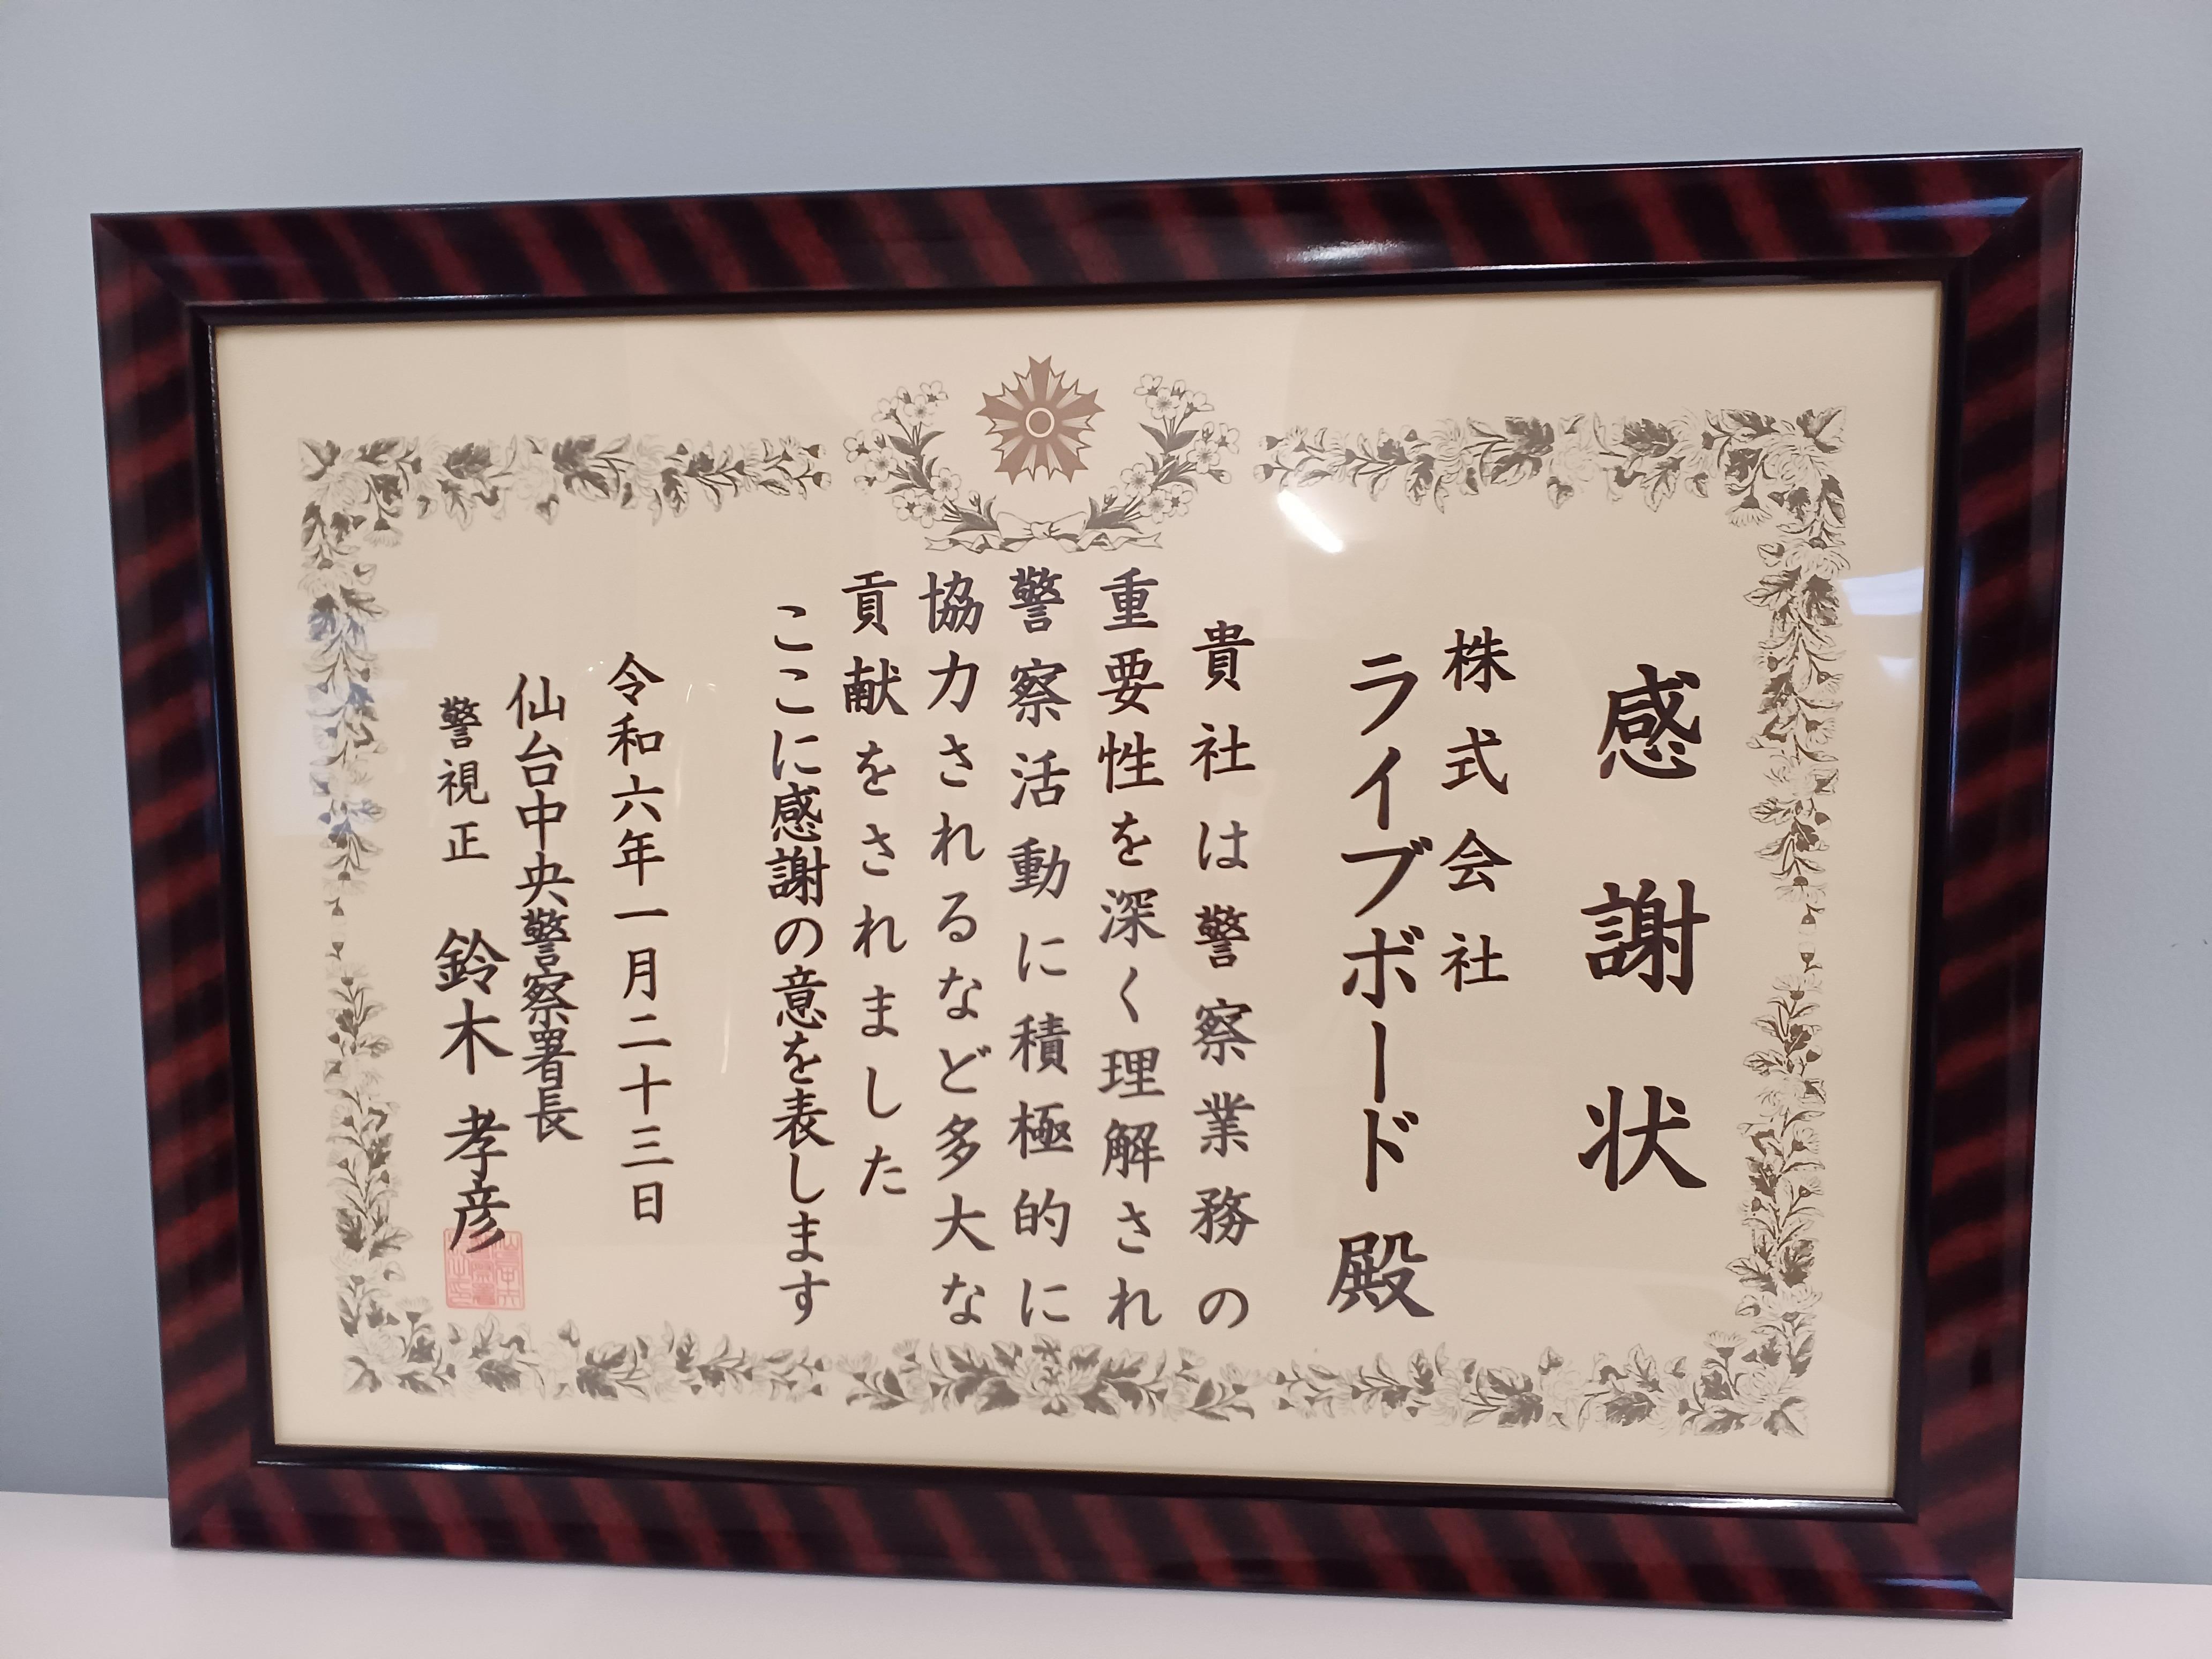 感謝状
株式会社
ライブボード殿
貴社は警察業務の
重要性を深く理解され
警察活動に積極的に
協力されるなど多大な
貢献をされました
ここに感謝の意を表します
令和六年一月二十三日
仙台中央警察署長
警視正 鈴木孝彦